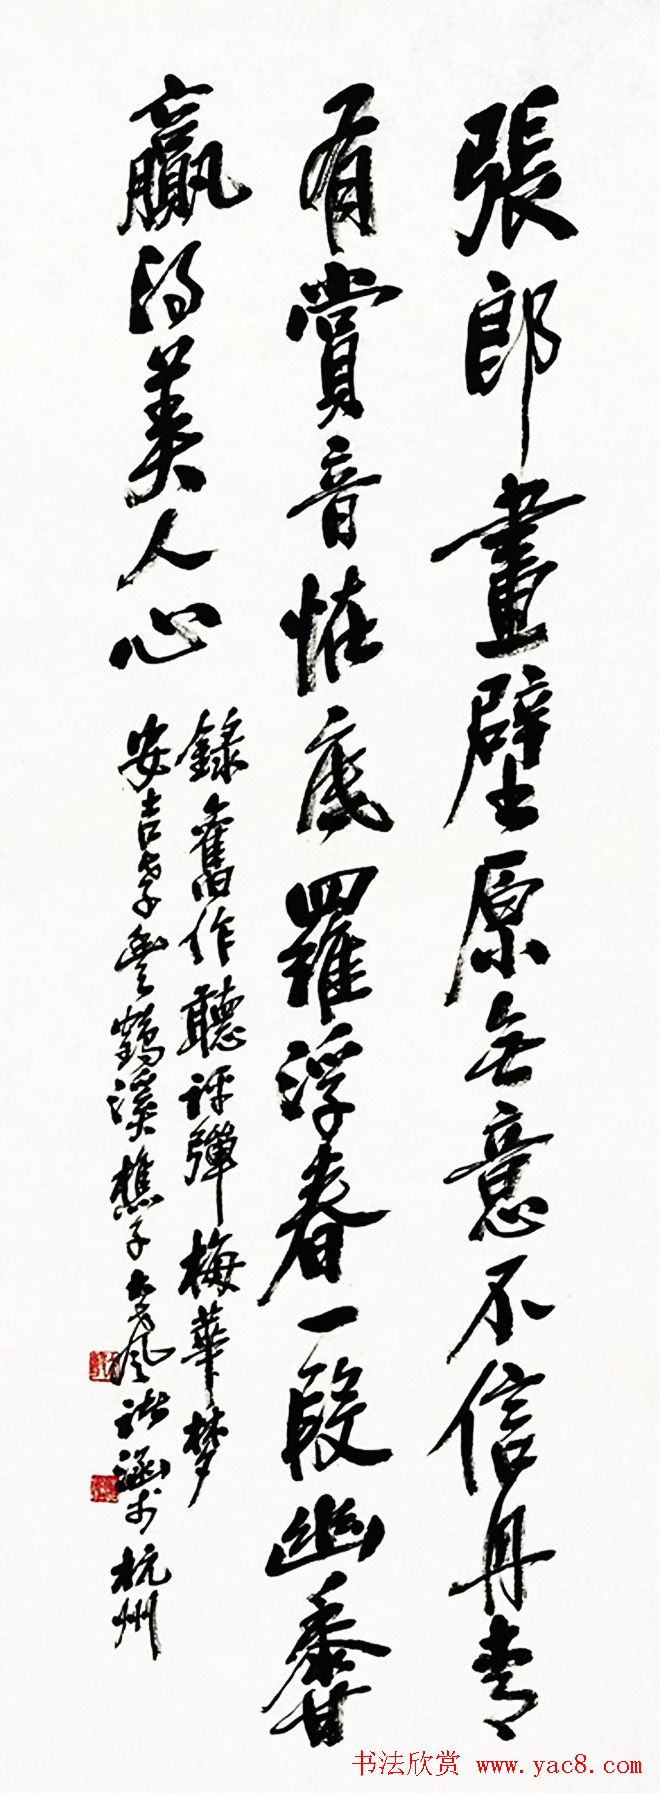 張郎畫壁原無意不信丹青
有賞音恠底羅浮春一段幽香
贏得美人心
錄舊作聽評彈梅華夢
安吉 鶴溪樵子 諸涵於杭州
书法欣赏 www.yac8.com